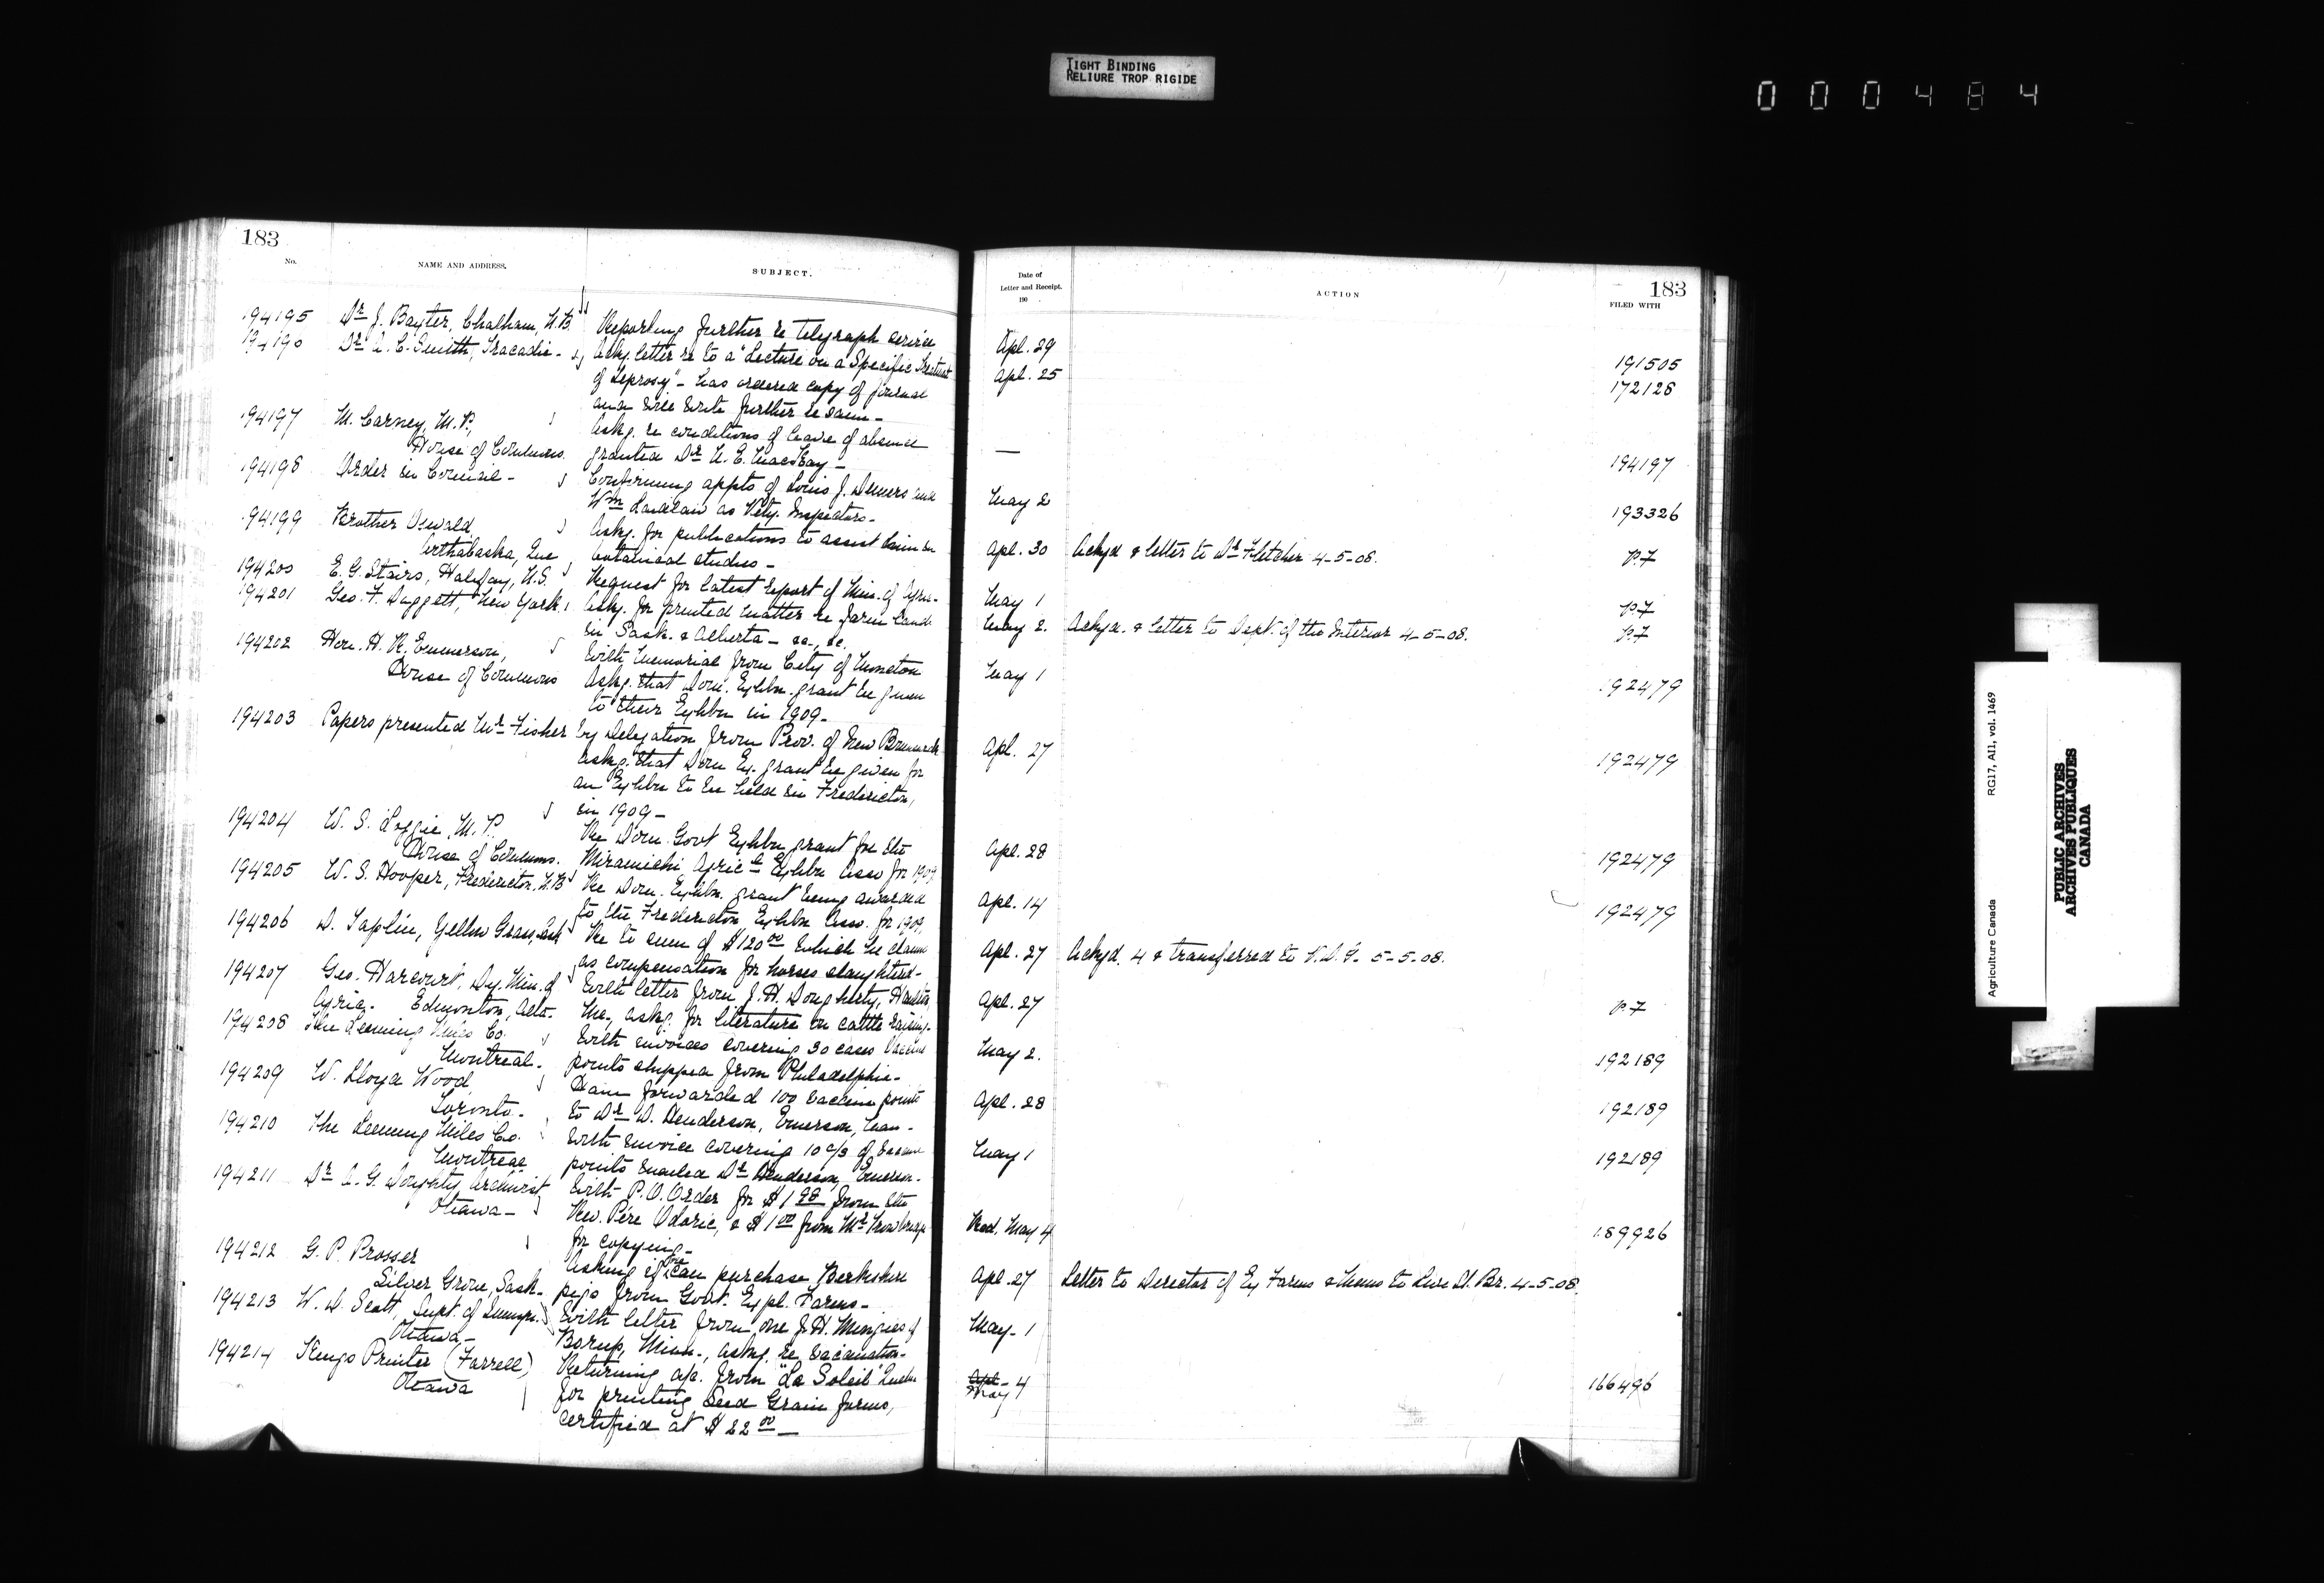 TIGHT BINDING
RELIURE TROP RIGIDE
000484
183
No.
NAME AND ADDRESS.
SUBJECT.
194195 Dr. J. Baxter, Chatham, N.B. Reporting further re telegraph service
194196 Dr. A. C. Smith, Tracadie - Ackg. letter re to a "Lecture on a Specific Treatment
of Leprosy" - has ordered copy of journal
and will write further re same -
194197 M. Carney, M.P., Askg. re conditions of leave of absence
House of Commons. granted Dr. A. E. MacKay -
194198 Order in Council - Confirming appts of Louis J. Demers and
Wm Laidlaw as Vety. Inspectors -
194199 Brother Oswald Askg. for publications to assist him in
Arthabaska, Que botanical studies -
194200 E. G. Stairs, Halifax, N.S. Request for latest Report of Min. of Agri.
194201 Geo. F. Daggett, New York. Askg. for printed matter re farm lands
in Sask. & Alberta - &c., &c.
194202 Hon. H. R. Emmerson, With Memorial from City of Moncton
House of Commons Askg. that Dom. Exhbn. grant be given
to their Exhbn in 1909 -
194203 Papers presented Mr. Fisher by Delegation from Prov. of New Brunswick
Askg. that Dom Ex. grant be given for
an Exhbn to be held in Fredericton,
in 1909 -
194204 W. S. Loggie, M.P. Re Dom. Govt Exhbn grant for the
House of Commons. Miramichi Agric'l Exhbn Assn for 1909
194205 W. S. Hooper, Fredericton, N.B. Re Dom. Exhbn. grant being awarded
to the Fredericton Exhbn Assn. for 1909,
194206 D. Taplin, Yellow Grass, Sask Re to sum of $120.00 which he claims
as compensation for horses slaughtered -
194207 Geo. Harcourt, Dy. Min. of With letter from J. H. Dougherty,
Agric. Edmonton, Alta. askg. for literature on cattle raising -
194208 The Leeming Miles Co. With invoices covering 30 cases Vaccine
Montreal - points shipped from Philadelphia -
194209 W. Lloyd Wood Has forwarded 100 vaccine points
Toronto - to Dr. D. Henderson, Emerson, Man -
194210 The Leeming Miles Co. With invoice covering 10 c/s of Vaccine
Montreal points mailed Dr. Henderson, Emerson -
194211 Dr. A. G. Doughty, Archivist With P.O. Order for $1.98 from the
Ottawa - Rev. Père Odoric, & $1.00 from Mr.
for copying -
194212 G. P. Prosser Asking if he can purchase Berkshire
Silver Grove, Sask - pigs from Govt. Expl. Farms -
194213 W. D. Scott, Supt. of Immgn. With letter from one J. H. Menzies of
Ottawa - Borup, Minn., askg. re vaccination -
194214 Kings Printer (Farrell) Returning a/c. from "La Soleil" Quebec
Ottawa for printing Seed Grain forms,
certified at $22.00 -
Date of
Letter and Receipt.
190
ACTION
183
FILED WITH
Apl. 29 191505
Apl. 25 172128
— 194197
May 2 193326
Apl. 30 Ackgd & letter to Dr. Fletcher 4-5-08. P.7
May 1 P.7
May 2. Ackgd. & letter to Dept. of the Interior 4-5-08. P.7
May 1 192479
Apl. 27 192479
Apl. 28 192479
Apl. 14 192479
Apl. 27 Ackgd. 4 & transferred to V.D.G. 5-5-08.
Apl. 27 P.7
May 2. 192189
Apl. 28 192189
May 1 192189
Recd. May 4 189926
Apl. 27 Letter to Director of Ex Farms & Memo to Live St. Br. 4-5-08.
May - 1
Apl - May 4 166496
Agriculture Canada RG17, AII, vol. 1469
PUBLIC ARCHIVES
ARCHIVES PUBLIQUES
CANADA